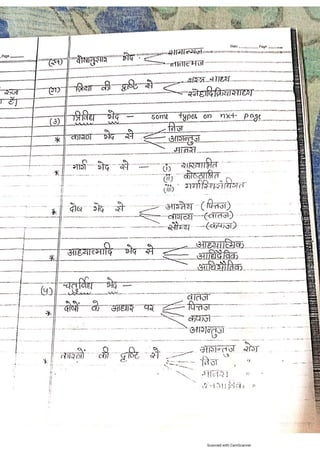 Date ______ Page ______
(ख) दोषानुसार भेद - सामान्यज
नानात्मज
(ग) क्रिया की दृष्टि से शस्त्र साध्य
स्नेहादिक्रियासाध्य
(3) त्रिविध भेद - some types on nxt page
* कारण भेद से निज
आगन्तुज
मानस
* मार्ग भेद से - (i) शाखाश्रित
(ii) कोष्ठाश्रित
(iii) मर्मास्थिसंधिगत
* दोष भेद से आग्नेय (पित्तज)
वायव्य (वातज)
सौम्य (कफज)
* आध्यात्मादि भेद से आध्यात्मिक
आधिदैविक
आधिभौतिक
(4) चतुर्विध भेद -
* दोषों के आधार पर वातज
पित्तज
कफज
आगन्तुज
* की दृष्टि से आगन्तुज रोग
निज "
मानस "
स्वाभाविक "
Scanned with CamScanner